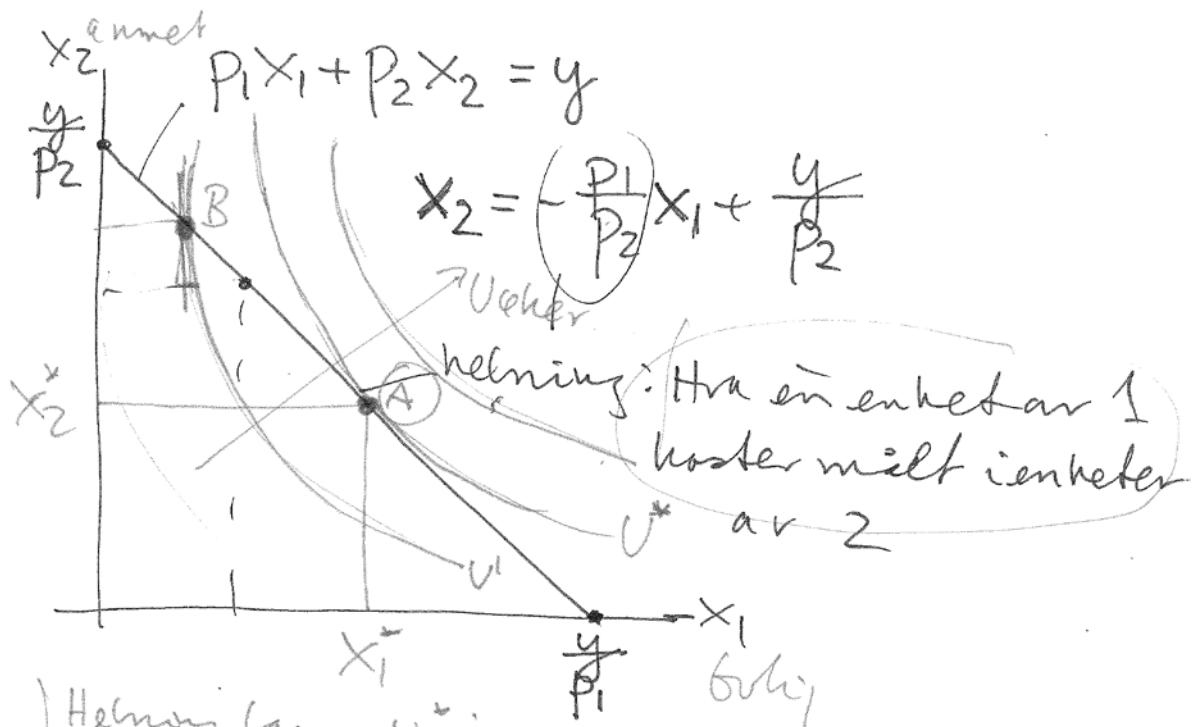 X₂ annet
p₁X₁ + p₂X₂ = y
y/p₂
X₂ = - p₁/p₂ X₁ + y/p₂
B
U øker
helning: Hva én enhet av 1
A
X₂*
koster målt i enheter
av 2
U*
U'
X₁
X₁*
y/p₁
bolig
Helning